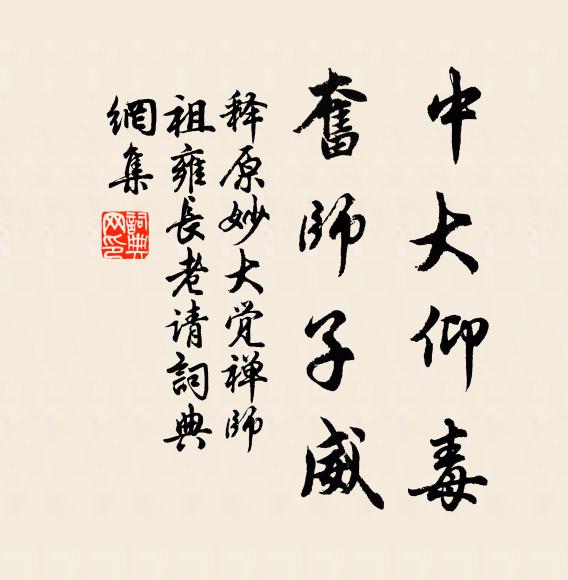 中大仰毒
奮師子威
释原妙大觉禅師
祖雍长老请詞典
網集
詞典网印